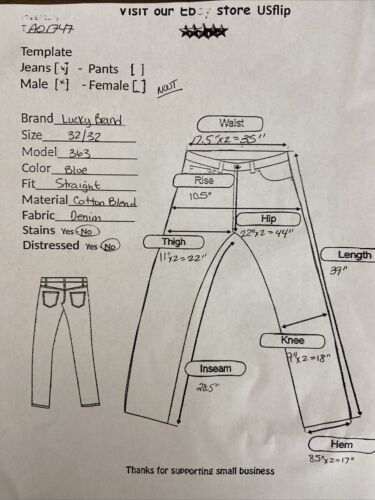 Visit our Eb y store USflip
TA01747
Template
Jeans [x] - Pants [ ]
Male [x] - Female [ ] NWT
Brand Lucky Brand
Size 32/32
Model 363
Color Blue
Fit Straight
Material Cotton Blend
Fabric Denim
Stains Yes No
Distressed Yes No
Waist
17.5"x2=35"
Rise
10.5"
Hip
22"x2=44"
Thigh
11"x2=22"
Length
39"
Knee
9"x2=18"
Inseam
28.5"
Hem
8.5"x2=17"
Thanks for supporting small business